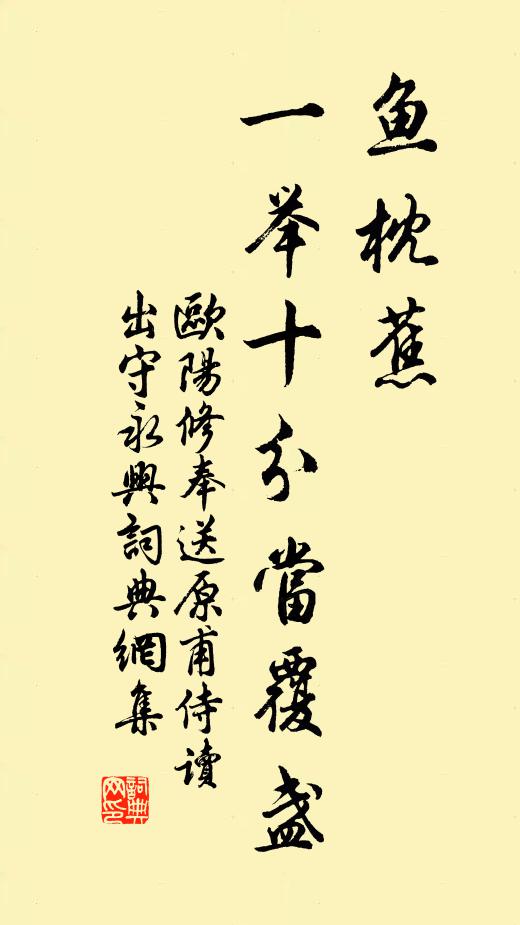 鱼枕蕉
一举十分當覆盏
歐陽修奉送原甫侍讀
出守永興詞典網集
詞典
网印